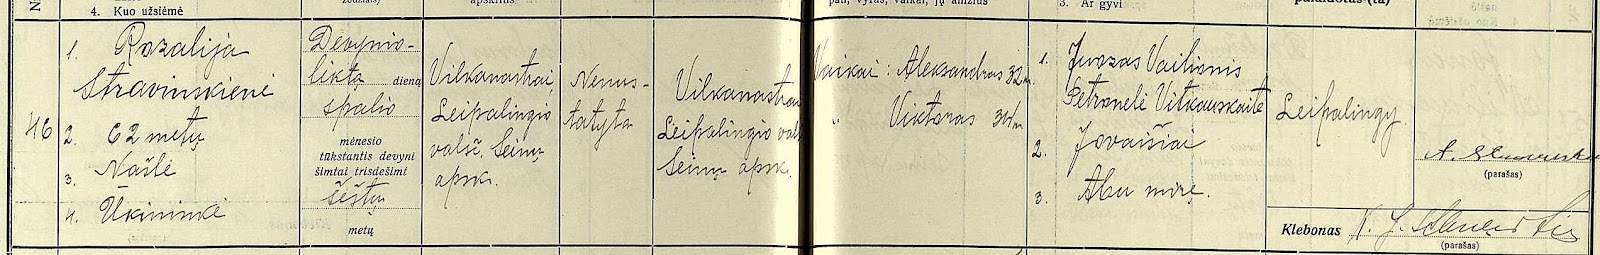 4. Kuo užsiėmė
3. Ar gyvi
46
1. Rozalija
Stravinskienė
2. 62 metų
3. Našlė
4. Ūkininkė
Devynio-
liktą dieną
spalio
mėnesio
tūkstantis devyni
šimtai trisdešimt
šeštų
metų
Vilkanastrai,
Leipalingio
valsč. Seinų
apsk.
Nenus-
tatyta
Vilkanastrai
Leipalingio vals
Seinų apsk.
Vaikai: Aleksandras 32 m.
" Viktoras
1. Juozas Vailionis
Petronelė Vitkauskaitė
2. Jovaišiai
3. Abu mirę.
Leipalingy
A.
(parašas)
Klebonas
(parašas)